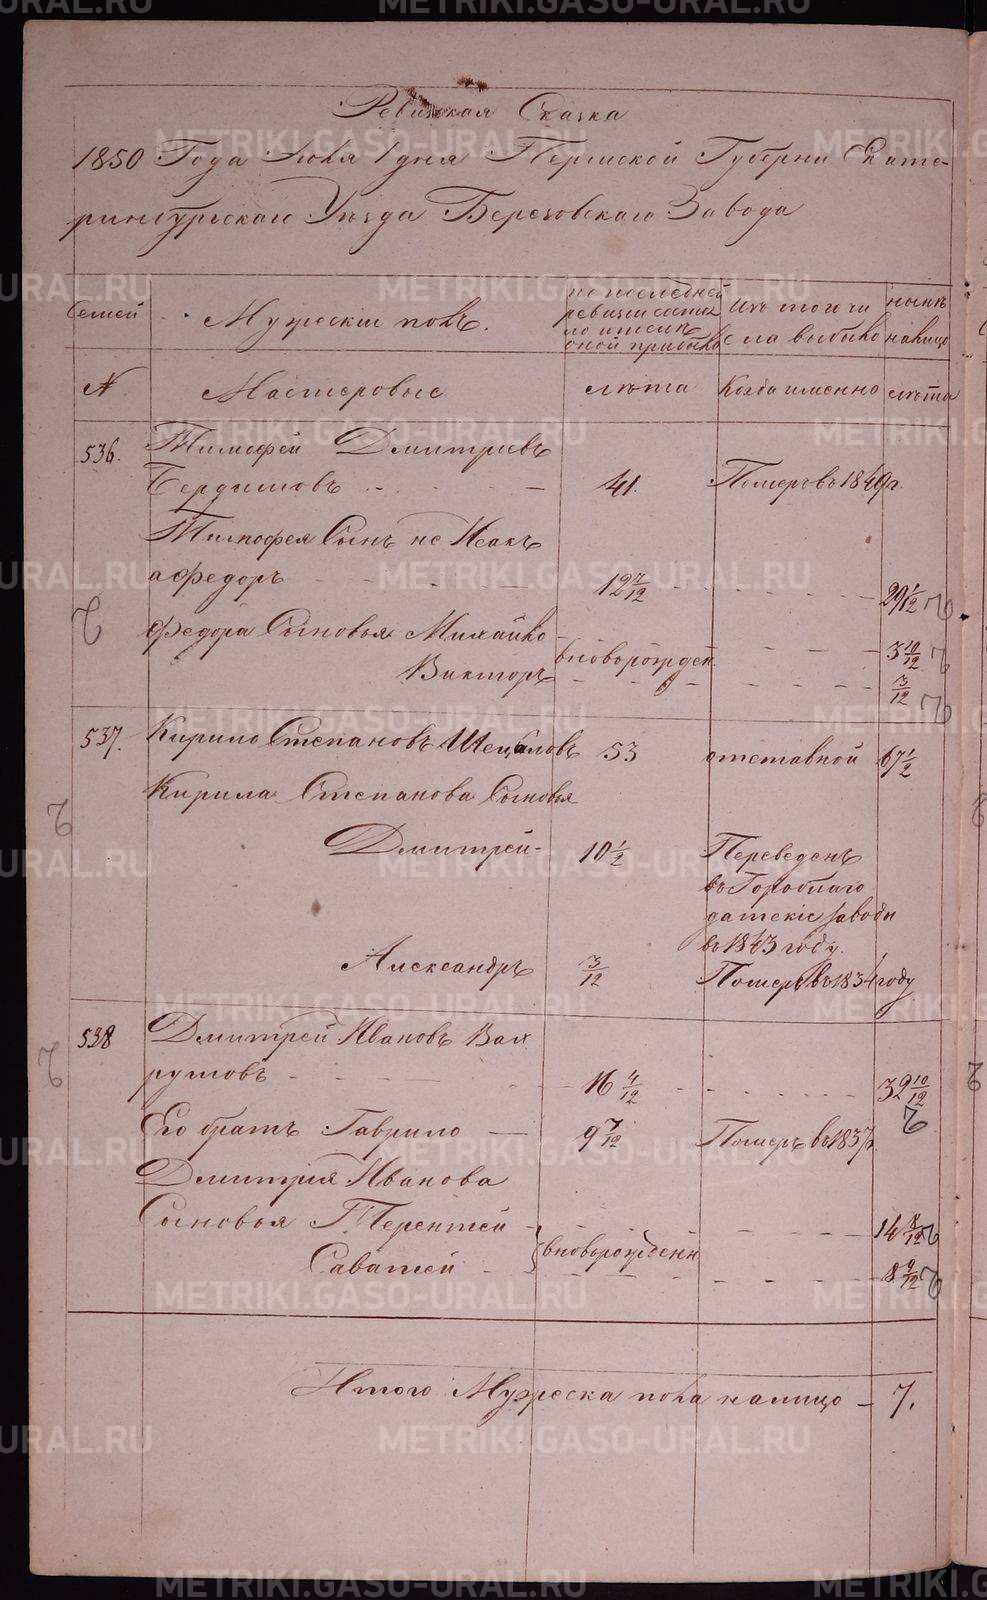 Ревизская Сказка
1850 Года Июля 1 дня Пермской Губернии Екате-
ринбургскаго Уезда Березовскаго Завода
Семей
Мужескій полъ.
по последней
ревизіи состоя
ло и после
оной прибыло
Изъ того чи
сла выбыло
ныне
налицо
№
Мастеровые
лѣта
Когда именно
лѣта
536. Тимофей Дмитріевъ
Бердышовъ - - - - 41. Померъ въ 1849 г.
Тимофея Сынъ не Исакъ
а Федоръ - - - - 12 7/12 - - - - 29 1/12
Федора Сыновья Михайло - - - - 3 10/12
Викторъ - - - - 3/12
вноворожден.
537. Кирило Степановъ 53 отставной 67 1/2
Кирила Степанова Сыновья
Дмитрей - 10 1/2 Переведенъ
въ Гороблаго
датскіе заводы
въ 1843 году.
Александръ 3/12 Померъ въ 1834 году
538 Дмитрей Ивановъ Вах
рушовъ - - - - 16 4/12 - - - - 32 10/12
Его братъ Гаврило — 9 7/12 Померъ въ 1837 г.
Дмитрия Иванова
Сыновья Терентей - - - - 14 8/12
вноворожденн
Саватей - - - - 8 9/12
Итого Мужеска пола налицо — 7.
METRIKI.GASO-URAL.RU